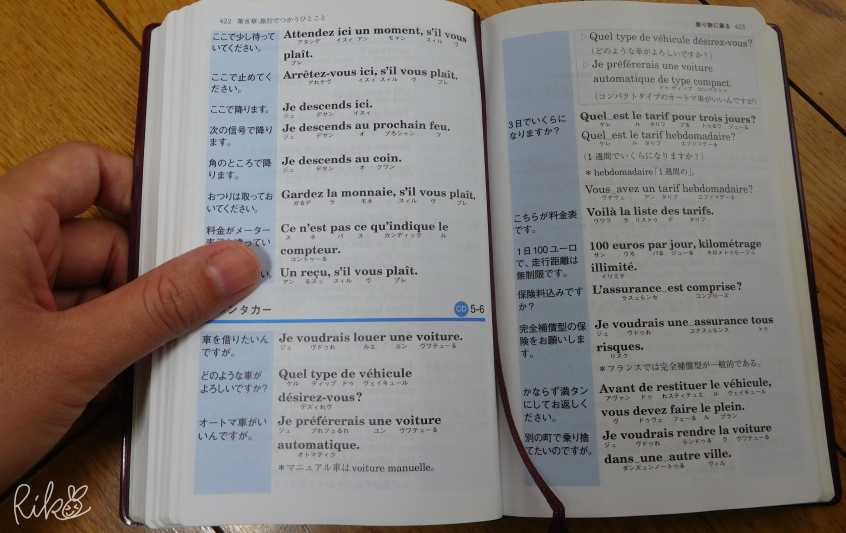 422 第8章 旅行でつかうひとこと
ここで少し待って
いてください。
Attendez ici un moment, s'il vous
アタンデ イスィ アン モマン スィル ヴ
plaît.
プレ
ここで止めてく
ださい。
Arrêtez-vous ici, s'il vous plaît.
アれテヴ イスィ スィル ヴ プレ
ここで降ります。
Je descends ici.
ジュ デサン イスィ
次の信号で降り
ます。
Je descends au prochain feu.
ジュ デサン オ プろシャン フ
角のところで降
ります。
Je descends au coin.
ジュ デサン オ クワン
おつりは取ってお
いてください。
Gardez la monnaie, s'il vous plaît.
ガるデ ラ モネ スィル ヴ プレ
料金がメーター
Ce n'est pas ce qu'indique le
ス ネ パ ス カンディック ル
compteur.
コントゥーる
Un reçu, s'il vous plaît.
アン るスュ スィル ヴ プレ
ンタカー
CD 5-6
車を借りたいん
ですが。
Je voudrais louer une voiture.
ジュ ヴドゥれ ルエ ユン ヴワテューる
どのような車が
よろしいですか?
Quel type de véhicule
ケル ティップ ドゥ ヴェイキュール
désirez-vous?
デズィれヴ
オートマ車がい
いんですが。
Je préférerais une voiture
ジュ プれフェるれ ユン ヴワテューる
automatique.
オトマティク
*マニュアル車はvoiture manuelle。
乗り物に乗る 423
Quel type de véhicule désirez-vous?
(どのような車がよろしいですか?)
Je préférerais une voiture
automatique de type compact.
ドゥ ティップ コンパクト
(コンパクトタイプのオートマ車がいいんですが)
3日でいくらに
なりますか?
Quel_est le tarif pour trois jours?
ケレ ル タリフ プる トゥるワ ジューる
Quel_est le tarif hebdomadaire?
ケレ ル タリフ エブドマデーる
(1週間でいくらになりますか?)
*hebdomadaire「1週間の」。
Vous_avez un tarif hebdomadaire?
ヴザヴェ アン タリフ エブドマデーる
こちらが料金表
です。
Voilà la liste des tarifs.
ヴワラ ラ リストゥ デ タリフ
1日100ユーロ
で、走行距離は
無制限です。
100 euros par jour, kilométrage
サン ウろ パる ジューる キロメトゥらージュ
illimité.
イリミテ
保険料込みです
か?
L'assurance_est comprise?
ラスュらンセ コンプリーズ
完全補償型の保
険をお願いしま
す。
Je voudrais une_assurance tous
ジュ ヴドゥれ ユナスュらンス トゥ
risques.
りスク
*フランスでは完全補償型が一般的である。
かならず満タン
にしてお返しく
ださい。
Avant de restituer le véhicule,
アヴァン ドゥ れスティテュエ ル ヴェイキュール
vous devez faire le plein.
ヴ ドゥヴェ フェーる ル プラン
別の町で乗り捨
てたいのですが。
Je voudrais rendre la voiture
ジュ ヴドゥれ らンドゥる ラ ヴワテューる
dans_une_autre ville.
ダンズュンノートゥる ヴィル
Rik